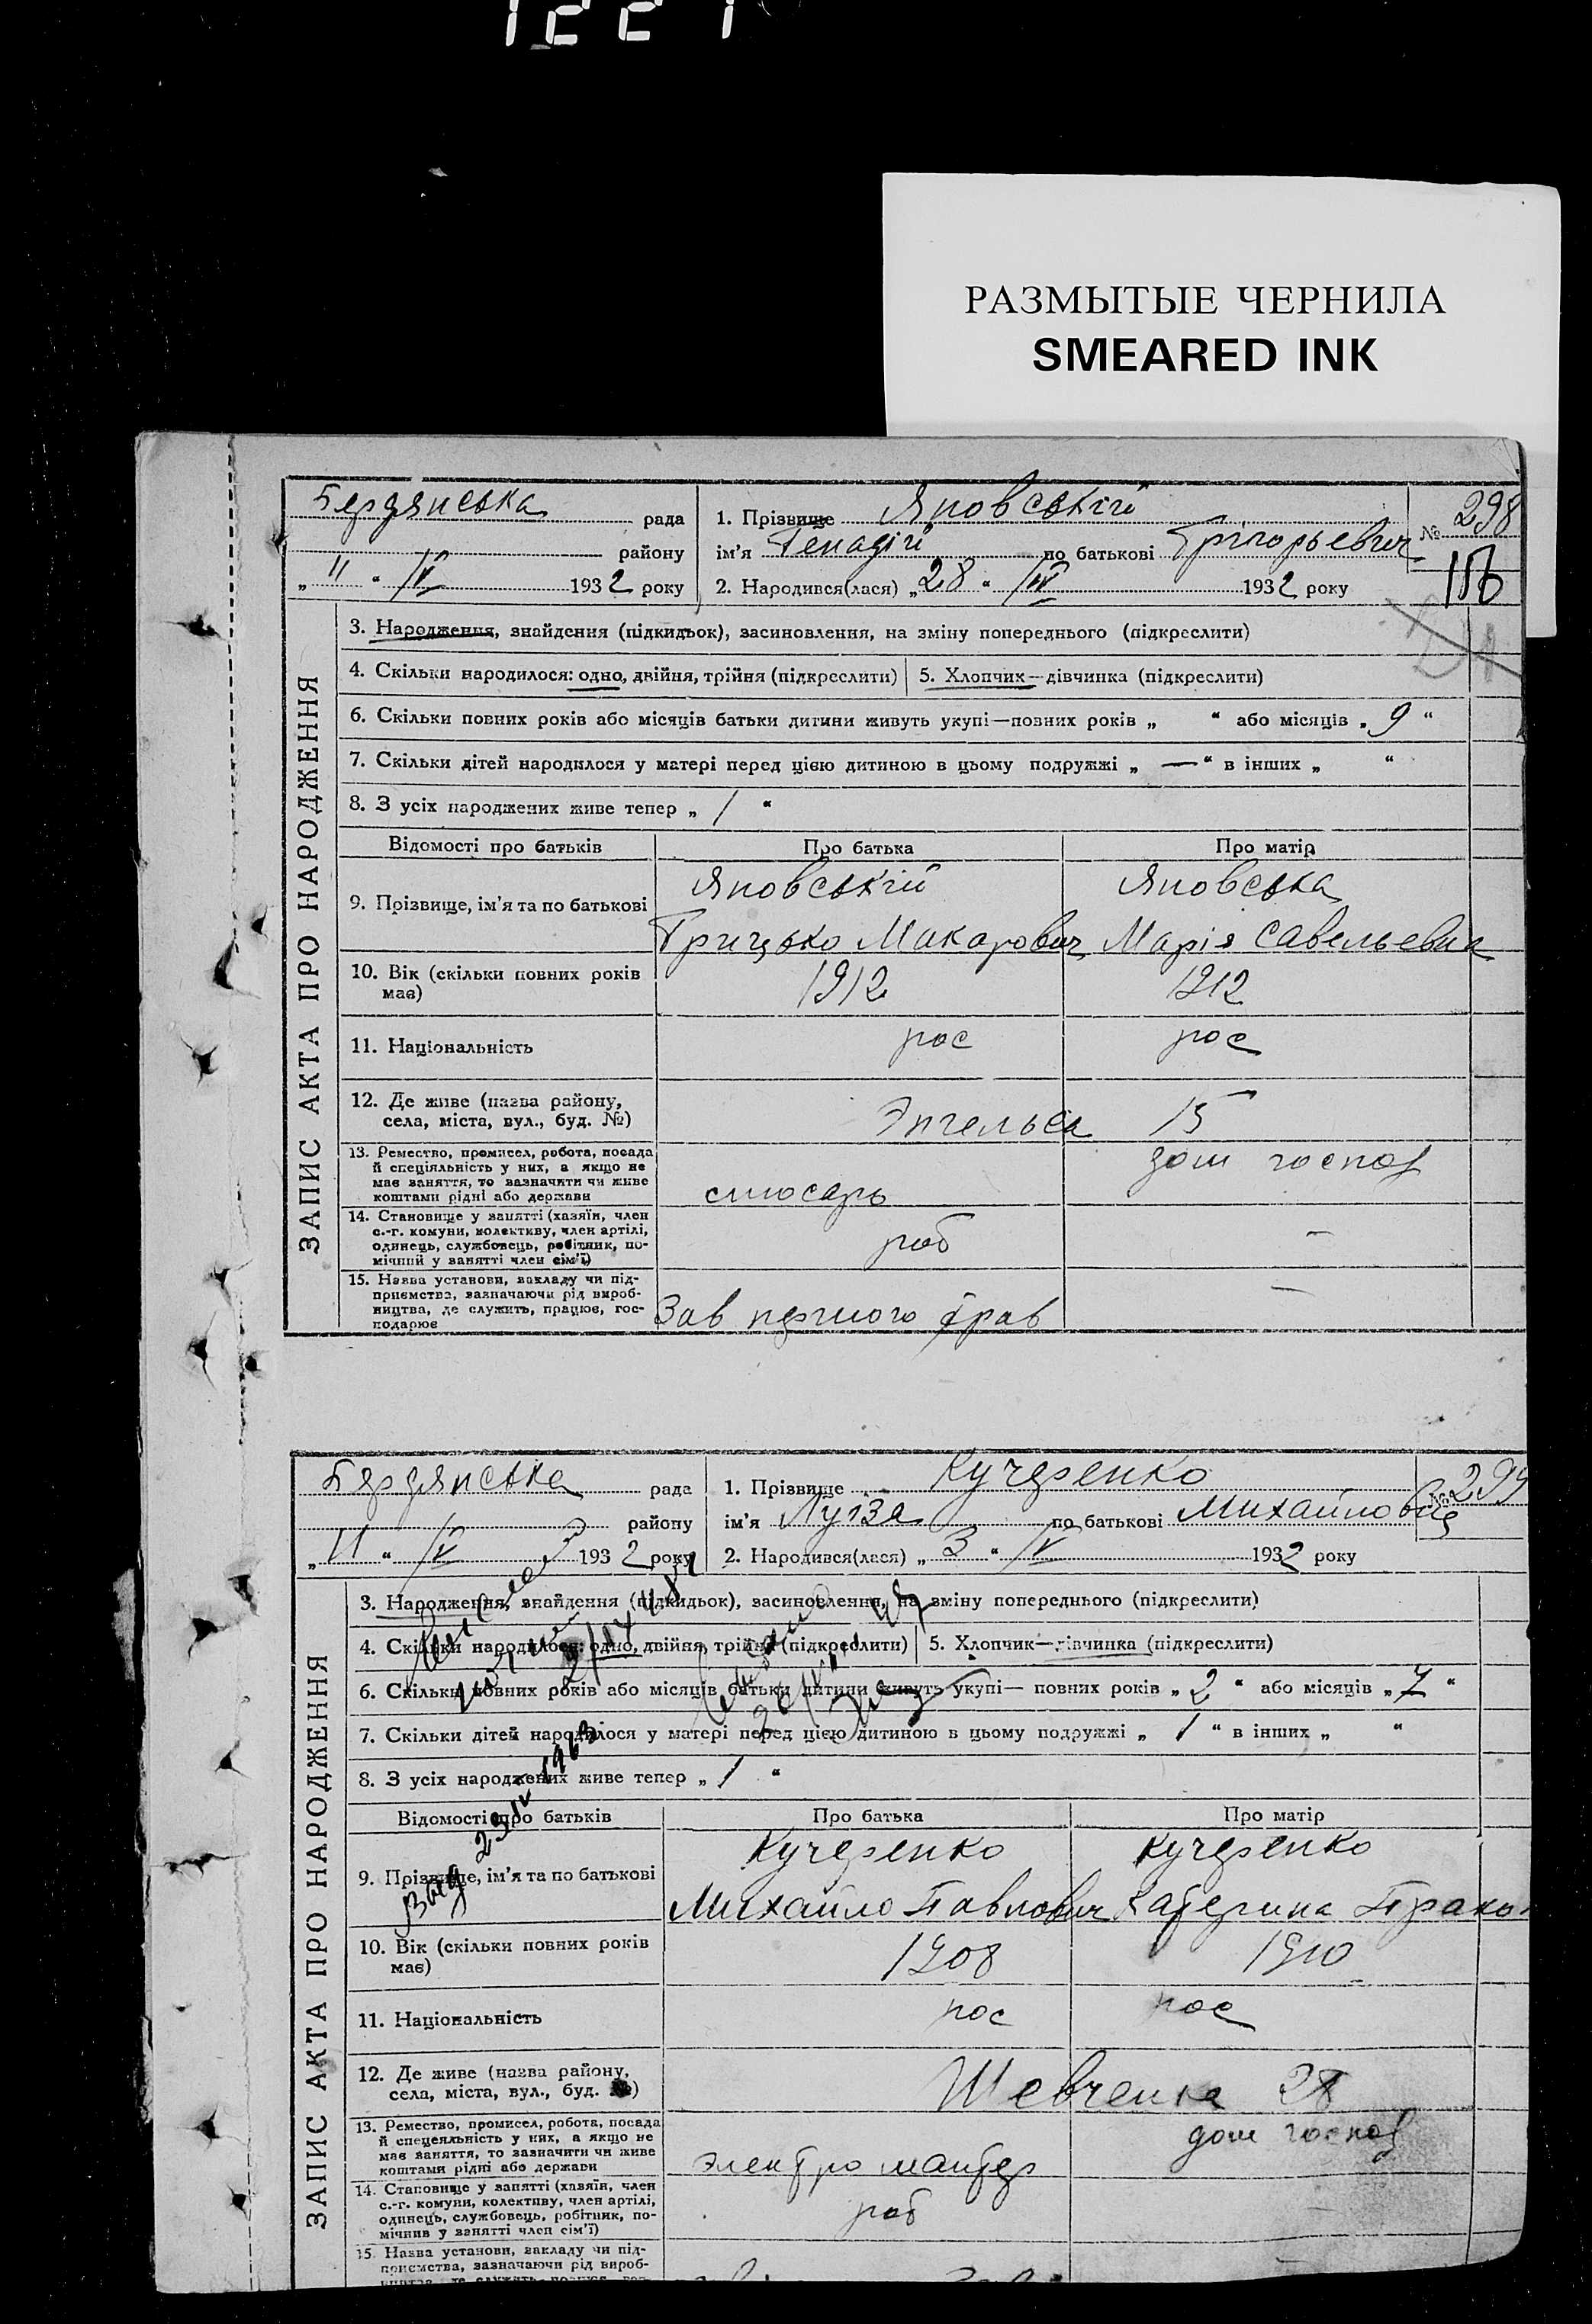 1221
РАЗМЫТЫЕ ЧЕРНИЛА
SMEARED INK
Бердянська рада
району
„ 11 “ IV 1932 року
1. Прізвище Яновській
ім’я Генадій по батькові Грігорьевич
2. Народився(лася) „28“ IV 1932 року
№ 298
ЗАПИС АКТА ПРО НАРОДЖЕННЯ
3. Народження, знайдення (підкидьок), засиновлення, на зміну попереднього (підкреслити)
4. Скільки народилося: одно, двійня, трійня (підкреслити) 5. Хлопчик—дівчинка (підкреслити)
6. Скільки повних років або місяців батьки дитини живуть укупі—повних років „ “ або місяців „ 9 “
7. Скільки дітей народилося у матері перед цією дитиною в цьому подружжі „ — “ в інших „ “
8. З усіх народжених живе тепер „ 1 “
Відомості про батьків Про батька Про матір
9. Прізвище, ім’я та по батькові
Яновській Яновська
Грицько Макарович Марія Савельевна
10. Вік (скільки повних років має) 1912 1912
11. Національність рос рос
12. Де живе (назва району, села, міста, вул., буд. №) Энгельса 15
13. Ремество, промисел, робота, посада
й спеціяльність у них, а якщо не
має заняття, то зазначити чи живе
коштами рідні або держави
слюсарь дом господ
14. Становище у занятті (хазяїн, член
с.-г. комуни, колективу, член артілі,
одинець, службовець, робітник, по-
мічний у занятті член сім’ї)
роб —
15. Назва установи, закладу чи під-
приємства, зазначаючи рід вироб-
ництва, де служить, працює, гос-
подарює
Зав —
Бердянська рада
району
„ 11 “ IV 1932 року
1. Прізвище Кучеренко
ім’я Луїза по батькові Михайловна
2. Народився(лася) „ 3 “ IV 1932 року
№ 299
ЗАПИС АКТА ПРО НАРОДЖЕННЯ
3. Народження, знайдення (підкидьок), засиновлення, на зміну попереднього (підкреслити)
4. Скільки народилося: одно, двійня, трійня (підкреслити) 5. Хлопчик—дівчинка (підкреслити)
6. Скільки повних років або місяців батьки дитини живуть укупі— повних років „ 2 “ або місяців „ 7 “
7. Скільки дітей народилося у матері перед цією дитиною в цьому подружжі „ 1 “ в інших „ “
8. З усіх народжених живе тепер „ 1 “
23 IV 1963
Відомості про батьків Про батька Про матір
9. Прізвище, ім’я та по батькові
Кучеренко Кучеренко
Михайло Павлович Катерина
10. Вік (скільки повних років має) 1908 1910
11. Національність рос рос
12. Де живе (назва району, села, міста, вул., буд. №) Шевченка 28
13. Ремество, промисел, робота, посада
й спецеяльність у них, а якщо не
має заняття, то зазначити чи живе
коштами рідні або держави
электро монтер дом господ
14. Становище у занятті (хазяїн, член
с.-г. комуни, колективу, член артілі,
одинець, службовець, робітник, по-
мічнив у занятті член сім’ї)
роб —
15. Назва установи, закладу чи під-
приємства, зазначаючи рід вироб-